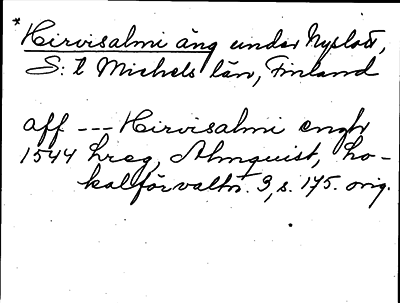 * Hirvisalmi äng under Nyslott,
S:t Michels län, Finland
aff --- Hirvisalmi engh
1544 hreg, Almquist, Lo-
kalförvaltn. 3, s. 175. orig.